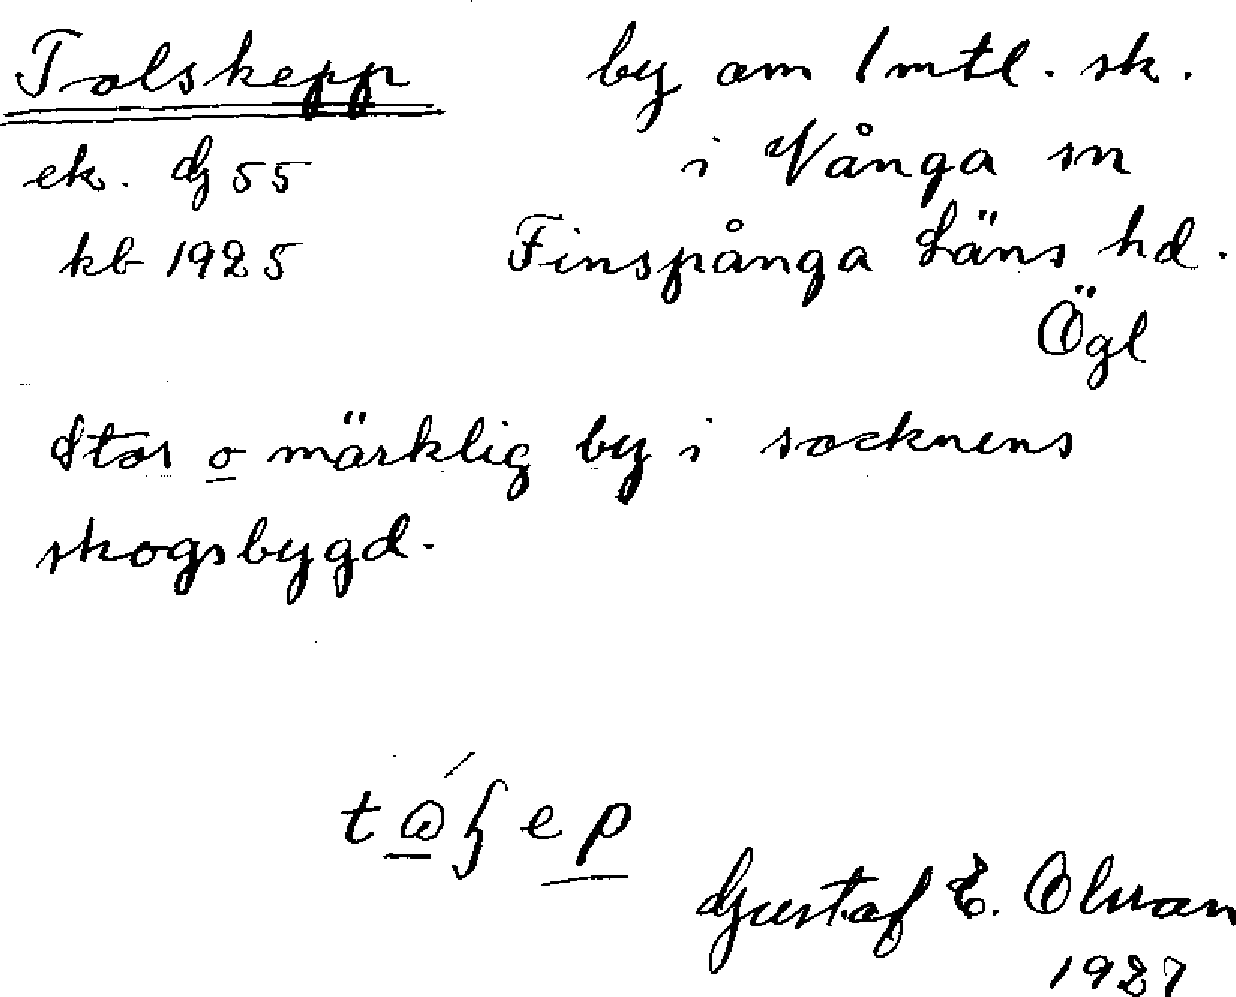 Tolskepp by om 1 mtl. sk.
ek. dg 55 i Vånga sn
kb 1925 Finspånga Läns hd.
Ögl
Stor o märklig by i socknens
skogsbygd.
Gustaf E. Olsson
1927